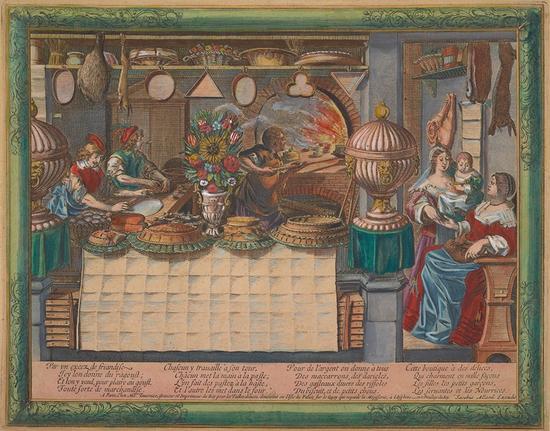 Par un excez de friandise
Icy lon donne du ragoust;
Et lon y vend, pour plaire au goust,
Toute sorte de marchandise.
Chascun y trauaille à son tour,
Chacun met la main à la paste;
L'un fait des pastez à la haste,
Et l'autre les met dans le four.
Pour de l'argent on donne à tous
Des maccarrons, des darioles,
Des gasteaux diuers, des rissoles
Du biscuit, et de petits choux
Cette boutique a des délices,
Qui charment en mille façons
Les filles, les petits garçons,
Les seruantes et les Nourrices.
A Paris, Chez